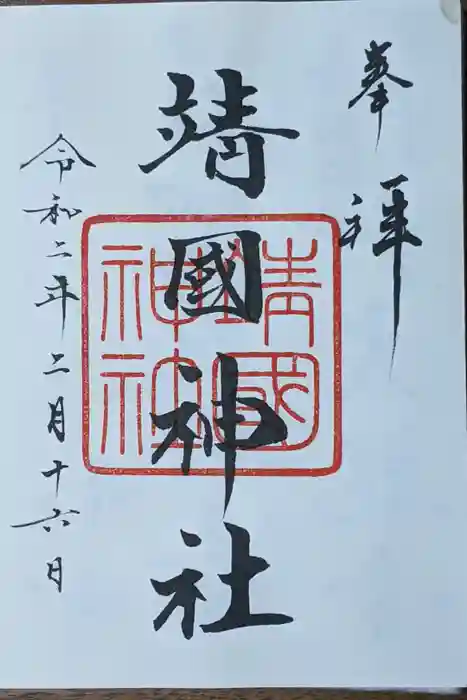 奉拝
靖國神社
靖國
神社
令和二年二月十六日